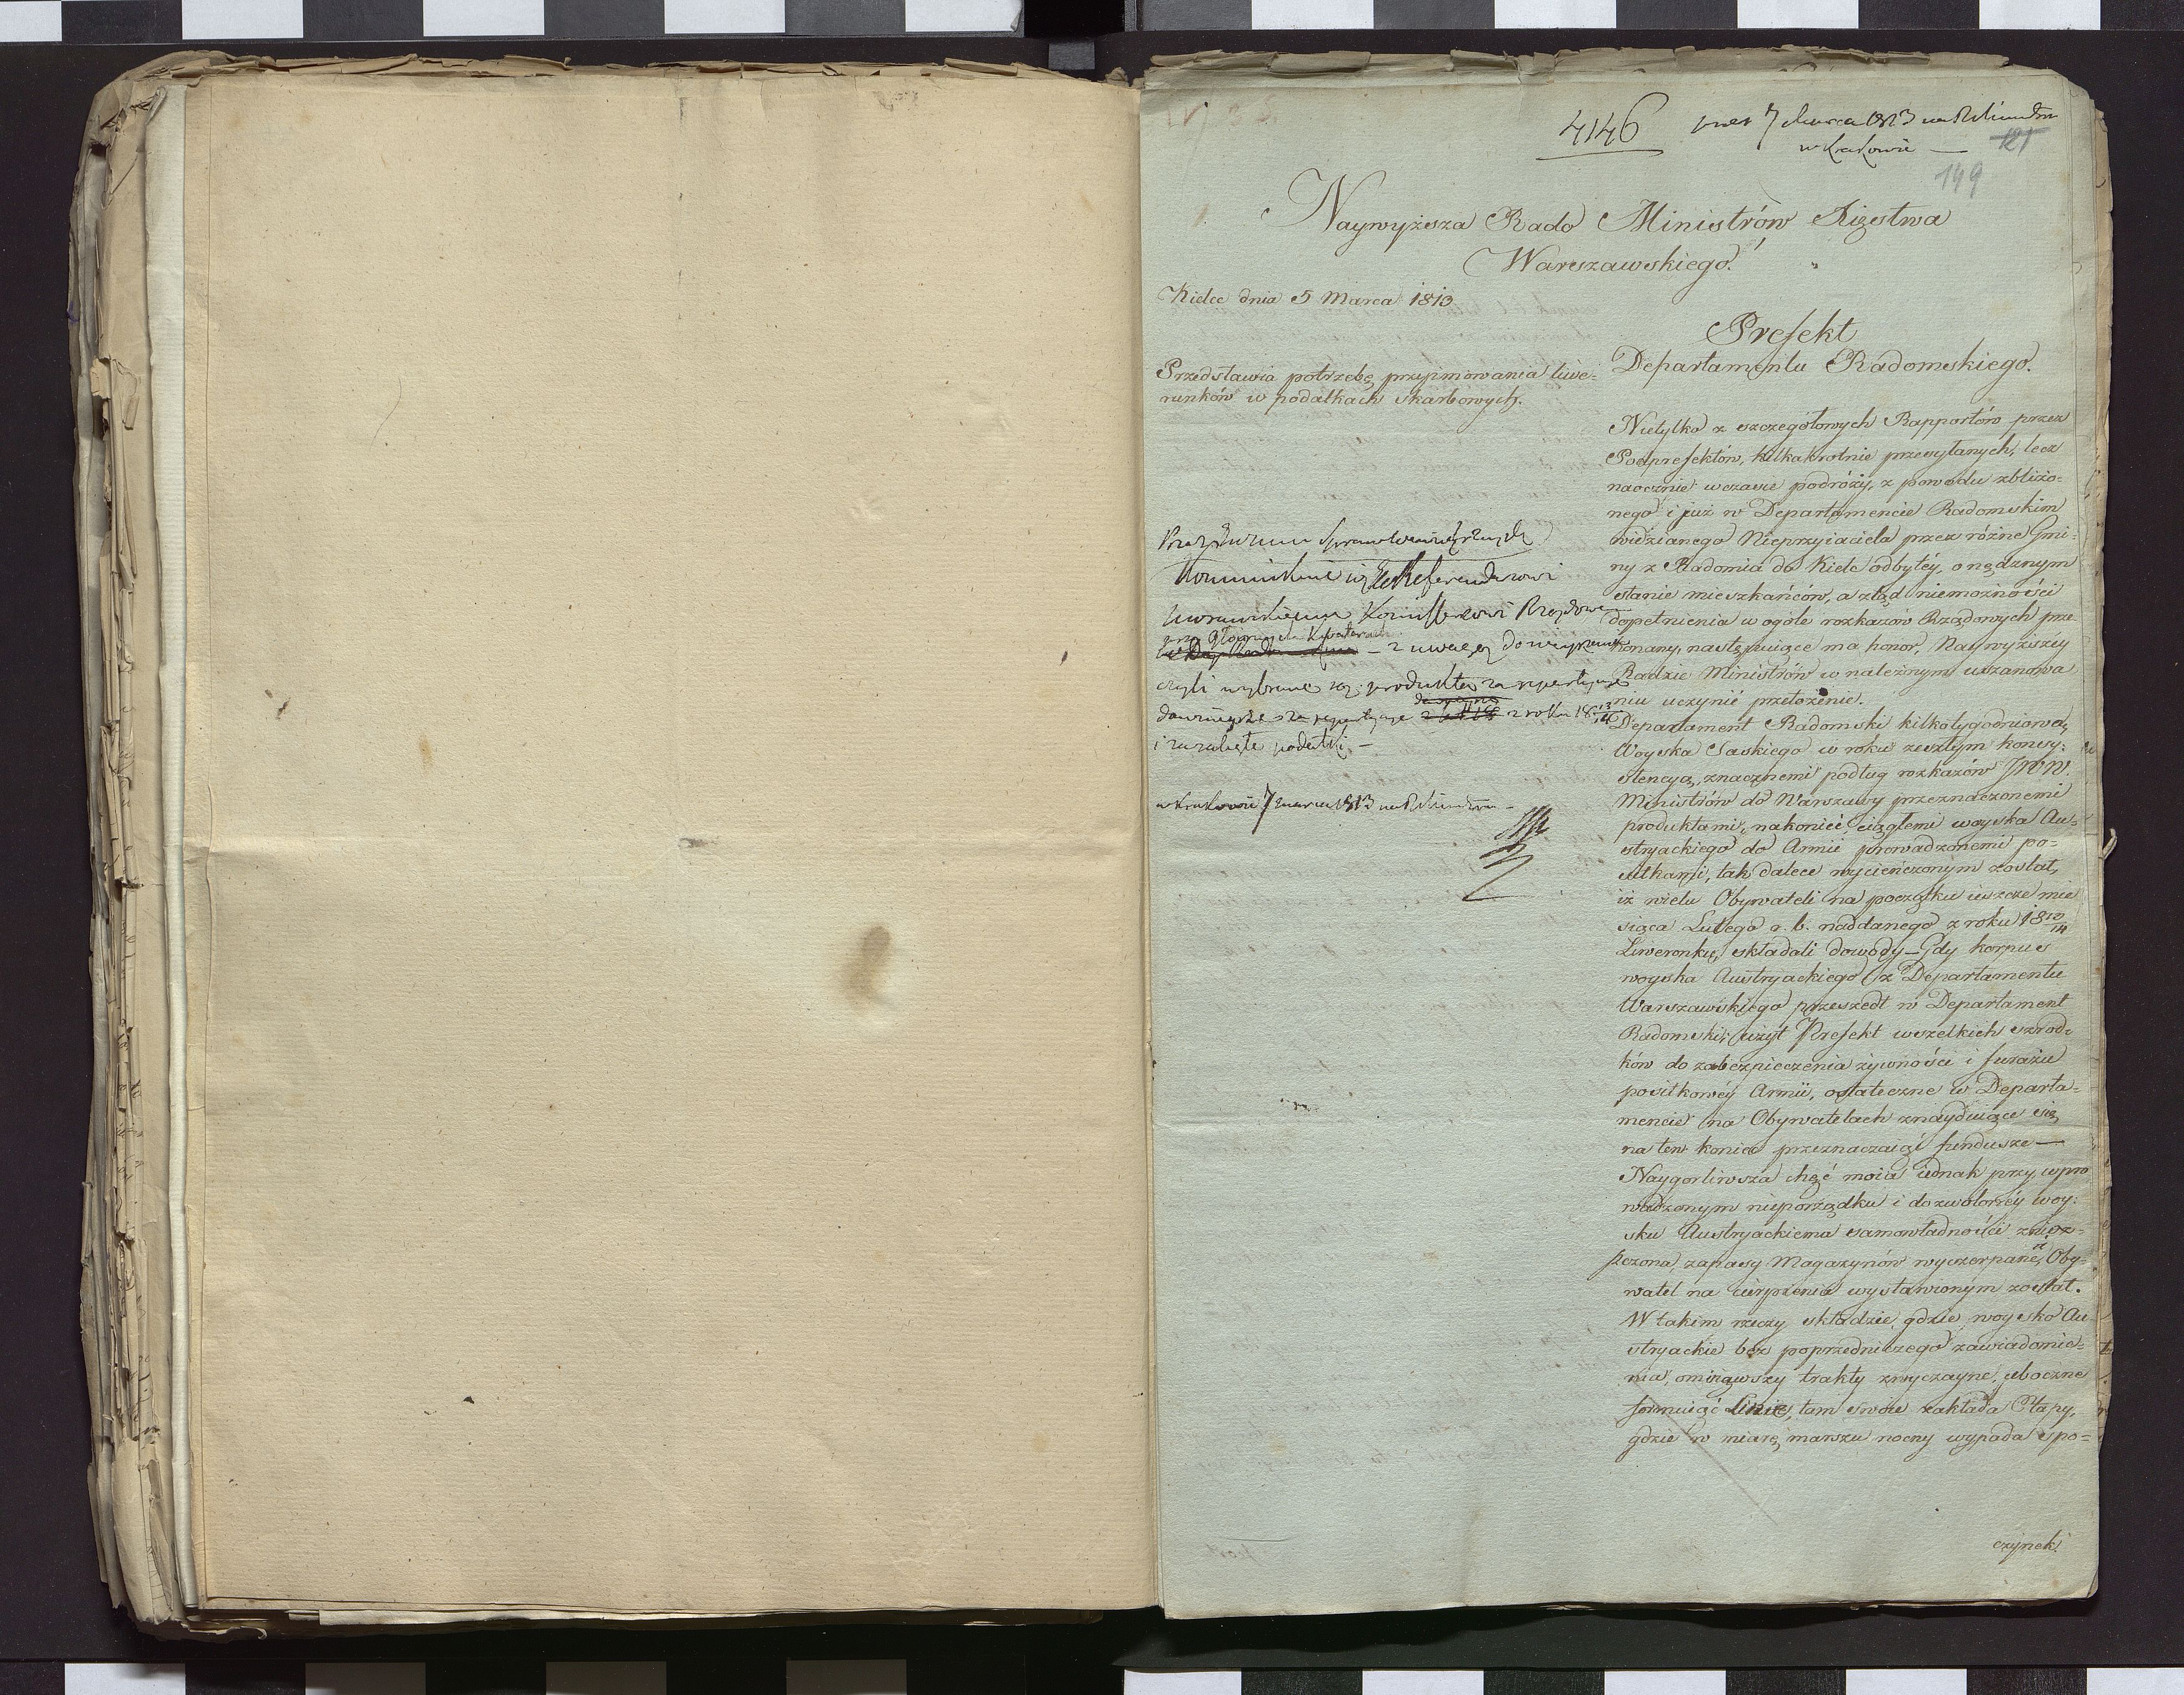 4146
7 Marca 1813
w Krakowie —
121
149
Naywyższa Rada Ministrów Xięstwa
Warszawskiego.
Kielce dnia 5 Marca 1813
Prefekt
Departamentu Radomskiego.
Przedstawia potrzebę przyjmowania liwe-
runków w podatkach skarbowych.
kommunikuie się Referendarzowi
Kommissarzowi Rządowe
przy Główney Kwaterze
— z uwagą
czyli wybrane są produkta za repartycyę
dawnieysze za repartycye z roku 18 13/14
i zaległe podatki —
w Krakowie 7 marca 1813
Nietylko z szczegółowych Rapportów przez
Podprefektów, kilkakrotnie przesyłanych, lecz
naocznie wczasie podróży, z powodu zbliżo-
nego i już w Departamencie Radomskim
widzianego Nieprzyiaciela przez różne Gmi-
ny z Radomia do Kielc odbytéy, o nędznym
stanie mieszkańców, a ztąd niemożności
dopełnienia w ogóle rozkazów Rządowych prze
konany, następuiące ma honor, Naywyższéy
Radzie Ministrów w należnym uszanowa
niu uczynić przełożenie.
Departament Radomski kilkotygodniową,
Woyska Saskiego w roku zeszłym konsy-
stencyą, znacznemi podług rozkazów JWW.
Ministrów do Warszawy przeznaczonemi
produktami, nakoniec ciągłemi woyska Au-
stryackiego do Armii prowadzonemi po-
siłkami, tak dalece wycieńczonym został,
iż wielu Obywateli na początku ieszcze mie
siąca Lutego r. b. naddanego z roku 18
Liwerunku, składali dowody — Gdy korpus
woyska Austryackiego z Departamentu
Warszawskiego przeszedł w Departament
Radomski; użył Prefekt wszelkich szrod-
ków do zabezpieczenia żywności i furażu
posiłkowéy Armii, ostateczne w Departa-
mencie na Obywatelach znayduiące się
na ten koniec przeznaczaiąc fundusze —
Naygorliwsza chęć moia iednak przy wpro
wadzonym nieporządku i dozwolonéy woy-
sku Austryackiemu samowładności znisz-
czona, zapasy Magazynów wyczerpane, a Oby-
watel na cierpienia wystawionym został.
W takim rzeczy składzie, gdzie woysko Au
stryackie bez poprzedniczego zawiadomie-
nia, ominąwszy trakty zwyczayne, uboczne
formuiąc linie, tam swoie zakłada Etapy,
gdzie w miarę marszu nocny wypada spo-
czynek.